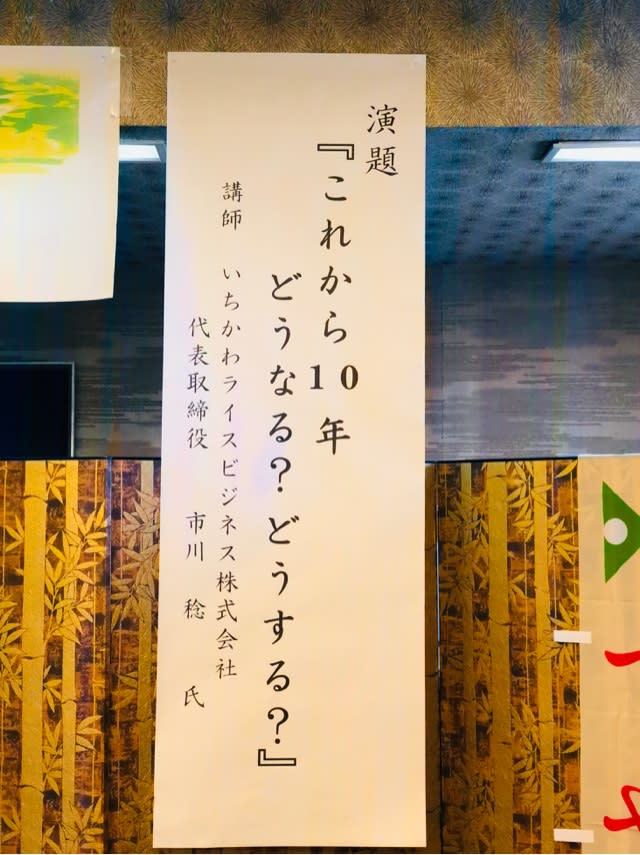 演題
『これから10年
どうなる？どうする？』
講師　いちかわライスビジネス株式会社
代表取締役　市川　稔　氏